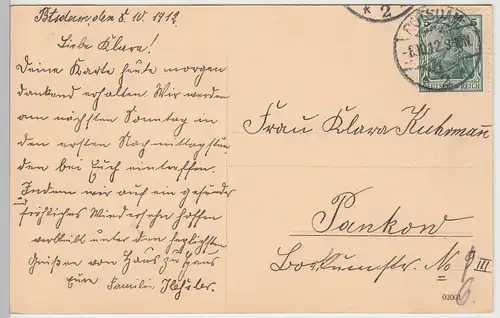 Potsdam, den 8. IV. 1912.
Liebe Klara!
Deine Karte heute morgen
dankend erhalten. Wir werden
am nächsten Sonntag in
den ersten Nachmittagstun-
den bei Euch eintreffen.
Indem wir auf ein gesundes
und fröhliches Wiedersehn hoffen
verbleibt unter den herzlichsten
Grüßen von Haus zu Haus
Eure Familie
POTSDAM
2
DEUTSCHES REICH
Frau Klara Kuhrmann
Pankow
Borkumstr. No
III
6.
02001